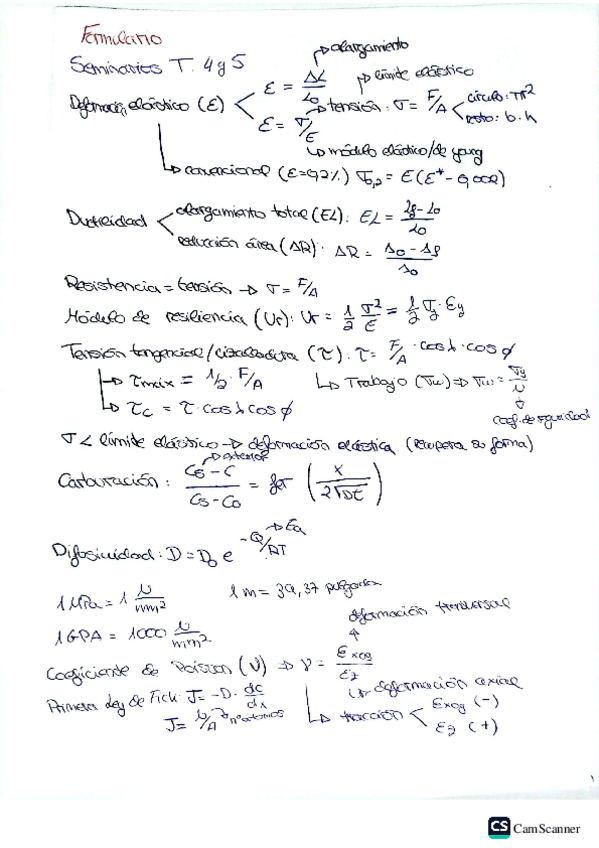 Formulario
Seminarios T. 4 y 5
↳ alargamiento
Deformación elástica (ε) < ε = ΔL/L₀
↳ límite elástico
ε = σ/E → tensión: σ = F/A < círculo: πr²
resto: b·h
↳ módulo elástico/de young
↳ convencional (ε=0,2%) σ₀,₂ = E(ε* - 0,002)
Ductilidad < alargamiento total (EL): EL = (lf - l₀)/l₀
reducción área (ΔR): ΔR = (A₀ - Af)/A₀
Resistencia = tensión → σ = F/A
Módulo de resiliencia (Ur): Ur = 1/2 σ²/E = 1/2 σy · εy
Tensión tangencial/cizalladura (τ): τ = F/A · cosλ · cosφ
↳ τmáx = 1/2 · F/A ↳ Trabajo (σw) ⇒ σw = σy/N
↳ coef. de seguridad
↳ τc = σ · cosλ cosφ
σ < límite elástico → deformación elástica (recupera su forma)
↳ exterior
Carburación: (Cs - C)/(Cs - C₀) = fer (x/2√Dt)
Difusividad: D = D₀ e^(-Q/RT) → Ea
1 MPa = 1 N/mm² 1 m = 39,37 pulgadas
1 GPA = 1000 N/mm²
deformación transversal
Coeficiente de Poisson (ν) ⇒ ν = εxoy/εz
↳ deformación axial
Primera ley de Fick: J = -D · dc/dx
↳ tracción < εxoy (-)
εz (+)
J = N/A → nº átomos
CS CamScanner